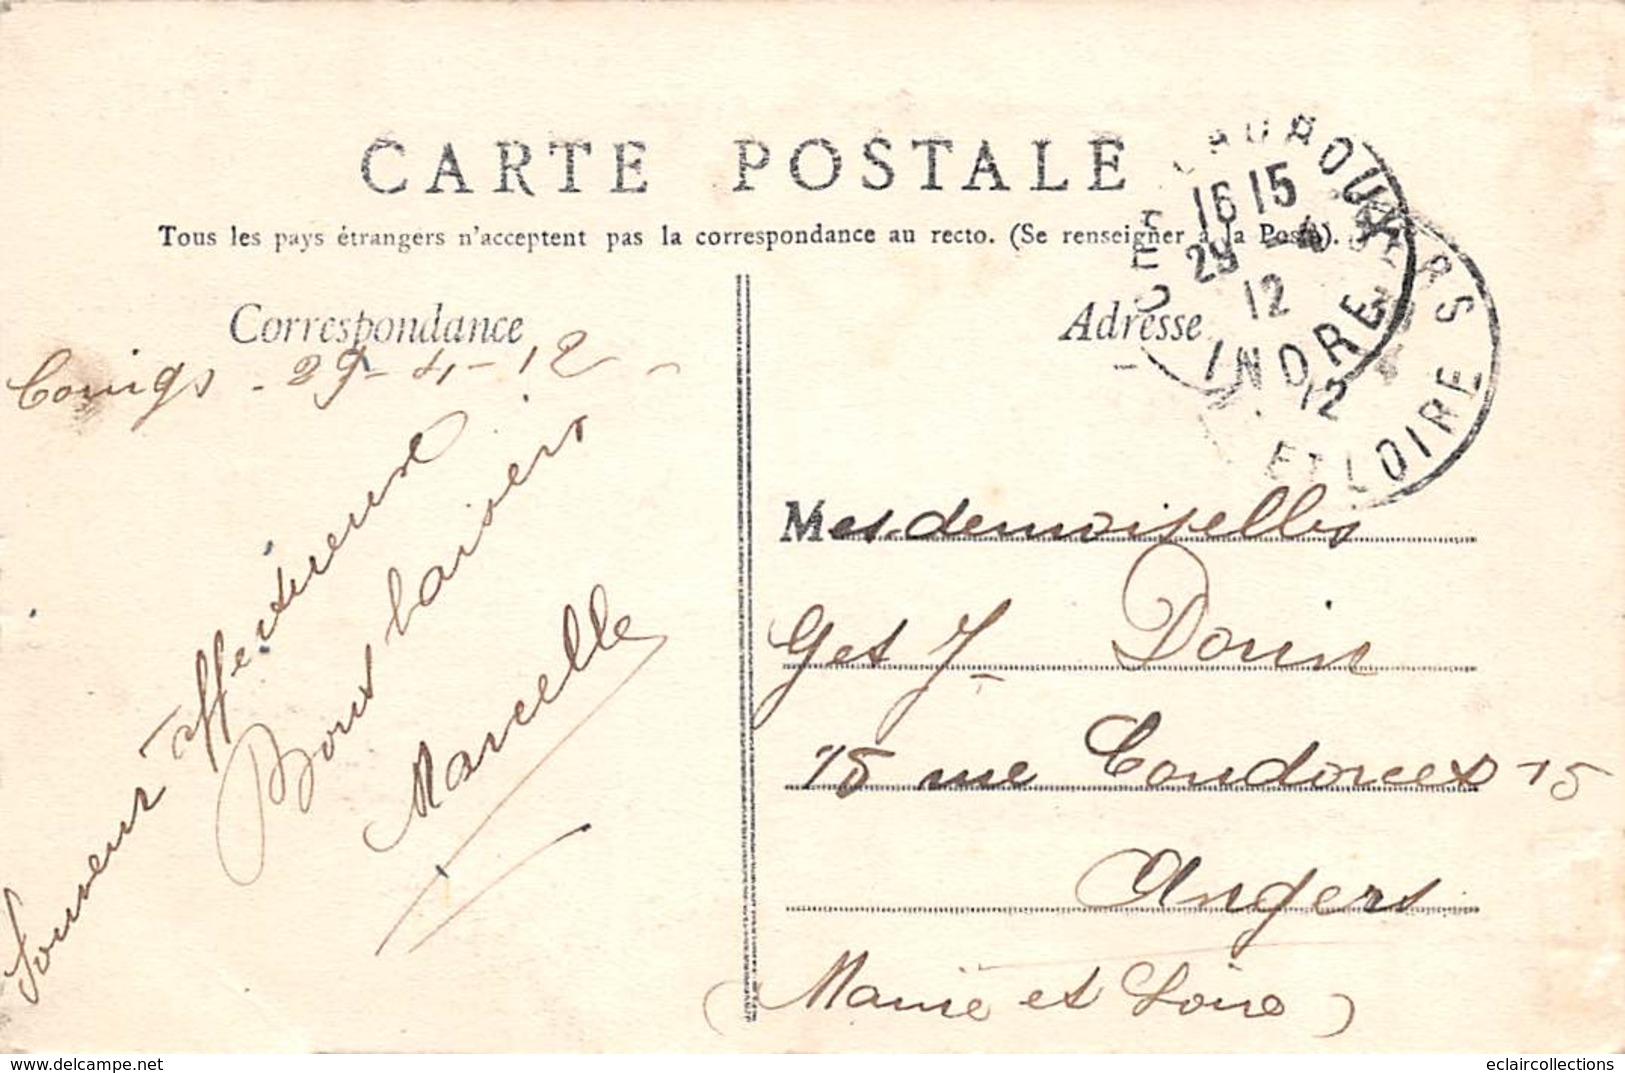 CARTE POSTALE
Tous les pays étrangers n'acceptent pas la correspondance au recto. (Se renseigner à la Poste).
Correspondance
Adresse
16 15
29 -4
12
INDRE
12
ET LOIRE
29-4-12
Souvenir affectueux
Bons baisers
Marcelle
Mesdemoiselles
G et J Dorin
15 rue Condorcet 15
Angers
(Maine et Loire)
delcampe.net
eclaircollections